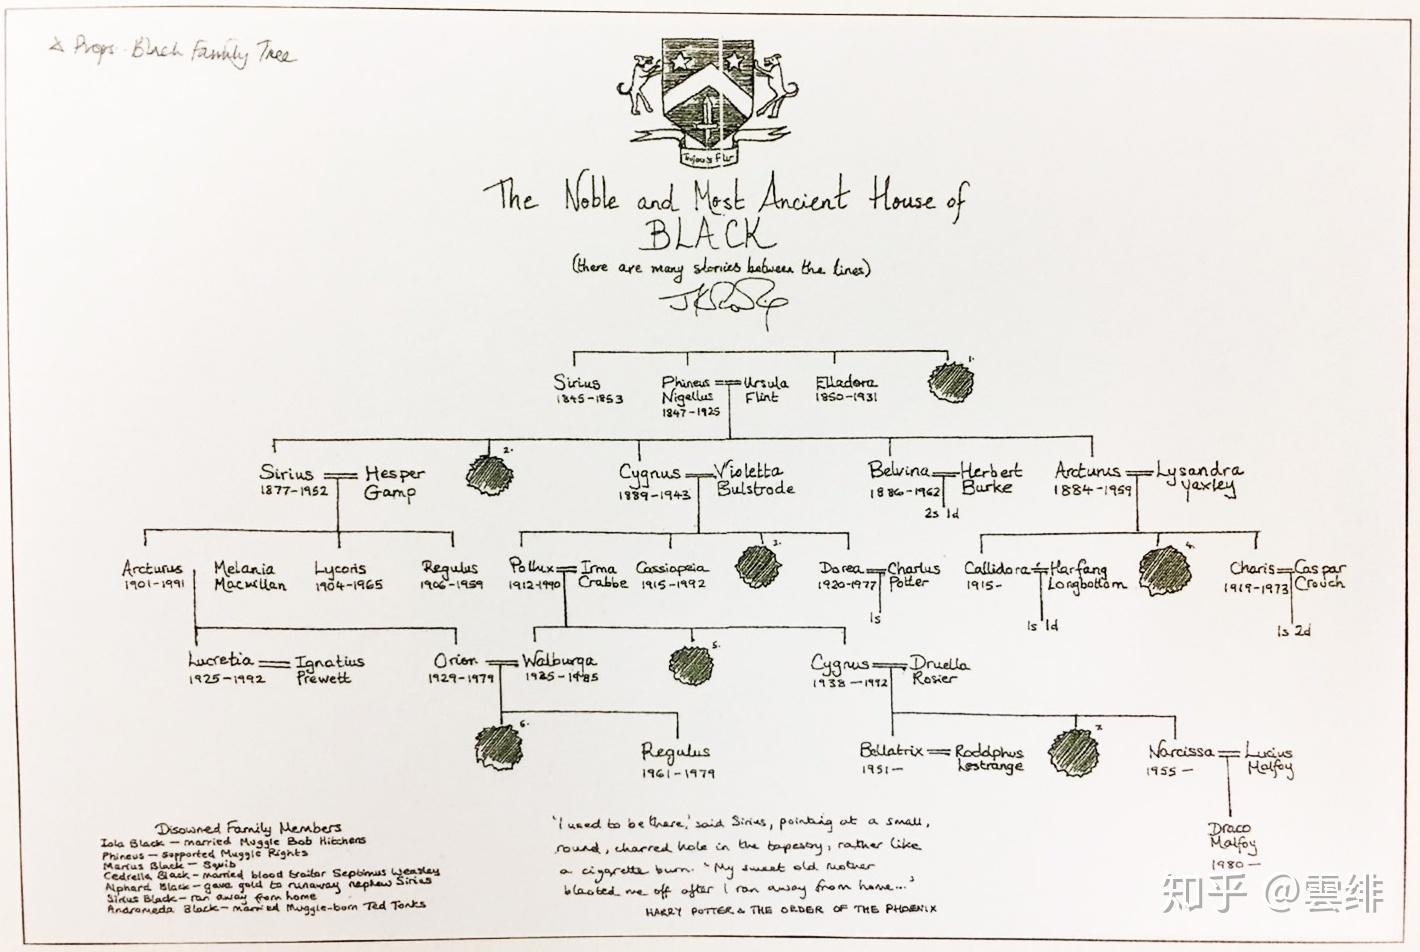 & Props - Black Family Tree
Toujours Pur
The Noble and Most Ancient House of
BLACK
(there are many stories between the lines)
JKRowling
1.
Sirius
1845-1853
Phineus
Nigellus
1847-1925
Ursula
Flint
Elladora
1850-1931
Sirius
1877-1952
Hesper
Gamp
2.
Cygnus
1889-1943
Violetta
Bulstrode
Belvina
1886-1962
Herbert
Burke
2s 1d
Arcturus
1884-1959
Lysandra
Yaxley
Arcturus
1901-1991
Melania
Macmillan
Lycoris
1904-1965
Regulus
1906-1959
Pollux
1912-1990
Irma
Crabbe
Cassiopeia
1915-1992
3.
Dorea
1920-1977
Charlus
Potter
1s
Callidora
1915-
Harfang
Longbottom
1s 1d
4.
Charis
1919-1973
Caspar
Crouch
1s 2d
Lucretia
1925-1992
Ignatius
Prewett
Orion
1929-1979
Walburga
1925-1985
5.
Cygnus
1938-1992
Druella
Rosier
6.
Regulus
1961-1979
Bellatrix
1951-
Roddphus
Lestrange
7.
Narcissa
1955-
Lucius
Malfoy
Draco
Malfoy
1980-
Disowned Family Members
Iola Black - married Muggle Bob Hitchens
Phineus - supported Muggle Rights
Marius Black - Squib
Cedrella Black - married blood traitor Septimus Weasley
Alphard Black - gave gold to runaway nephew Sirius
Sirius Black - ran away from home
Andromeda Black - married Muggle-born Ted Tonks
'I used to be there,' said Sirius, pointing at a small,
round, charred hole in the tapestry, rather like
a cigarette burn. 'My sweet old mother
blasted me off after I ran away from home...'
HARRY POTTER & THE ORDER OF THE PHOENIX
知乎 @雲绯